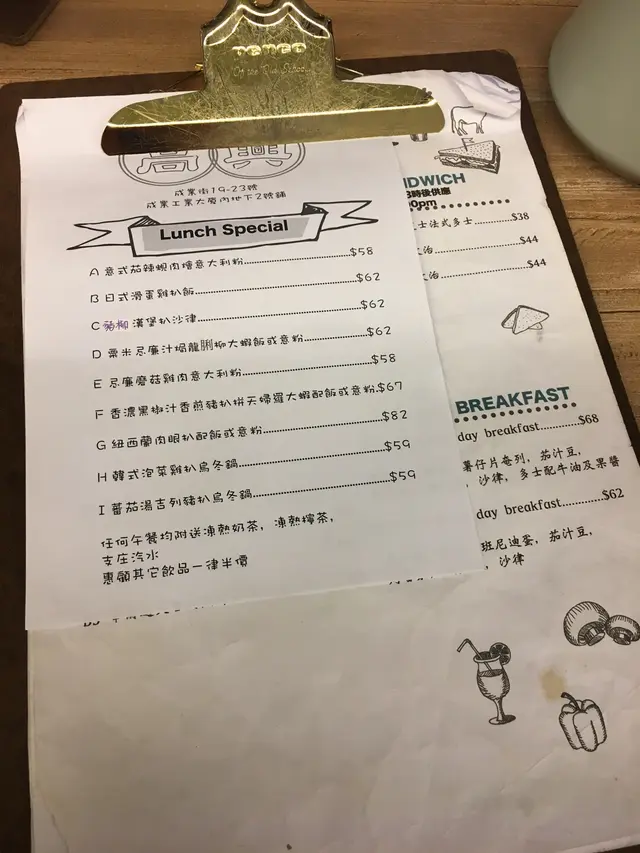 萬興
成業街19-23號
成業工業大廈內地下2號鋪
Lunch Special
A 意式茄辣蜆肉燴意大利粉 $58
B 日式滑蛋雞扒飯 $62
C 豬柳漢堡扒沙律 $62
D 粟米忌廉汁焗龍脷柳大蝦飯或意粉 $62
E 忌廉蘑菇雞肉意大利粉 $58
F 香濃黑椒汁香煎豬扒拼天婦羅大蝦配飯或意粉 $67
G 紐西蘭肉眼扒配飯或意粉 $82
H 韓式泡菜雞扒烏冬鍋 $59
I 蕃茄湯吉列豬扒烏冬鍋 $59
任何午餐均附送凍熱奶茶,凍熱檸茶,
支庄汽水
惠顧其它飲品一律半價
NDWICH
時後供應
0pm
士法式多士 $38
治 $44
治 $44
BREAKFAST
day breakfast $68
薯仔片奄列,茄汁豆,
沙律,多士配牛油及果醬
day breakfast $62
班尼迪蛋,茄汁豆,
沙律